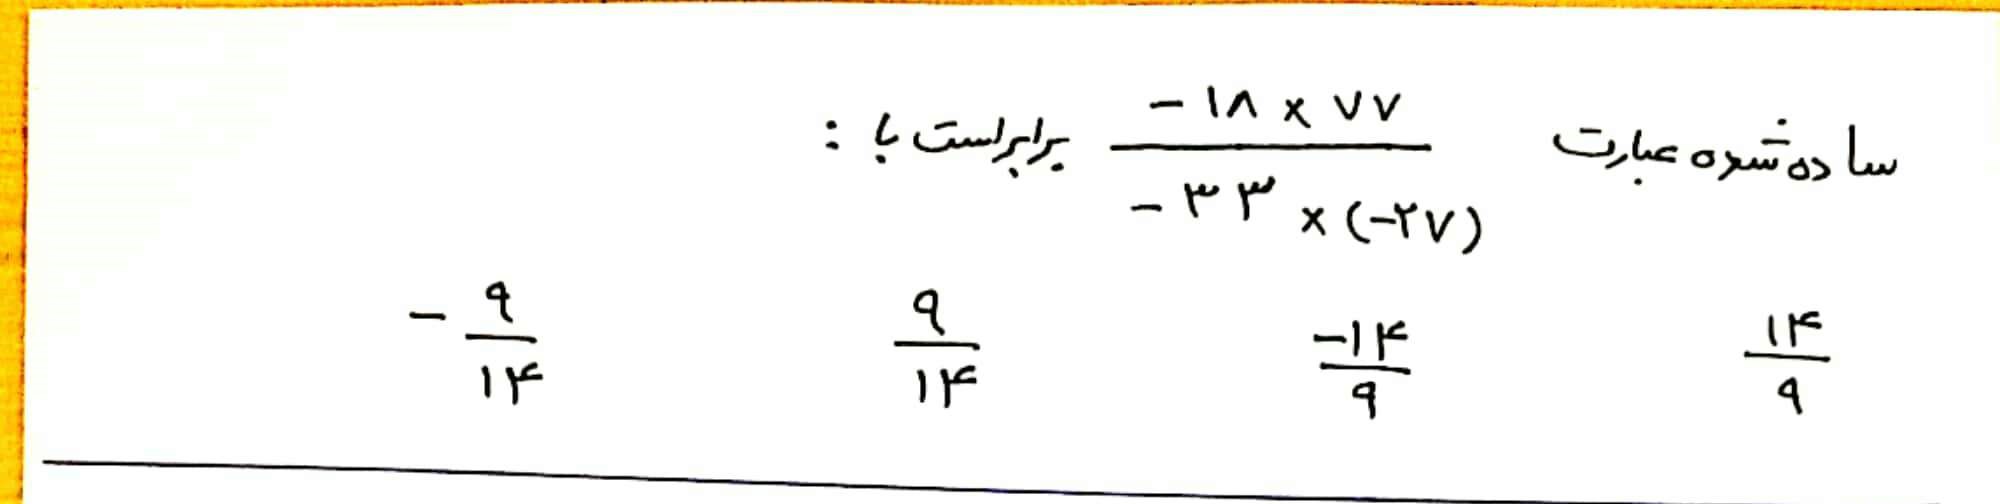 ساده شده عبارت -۱۸ × ۷۷ / -۳۳ × (-۲۷) برابر است با :
۱۴/۹ -۱۴/۹ ۹/۱۴ -۹/۱۴